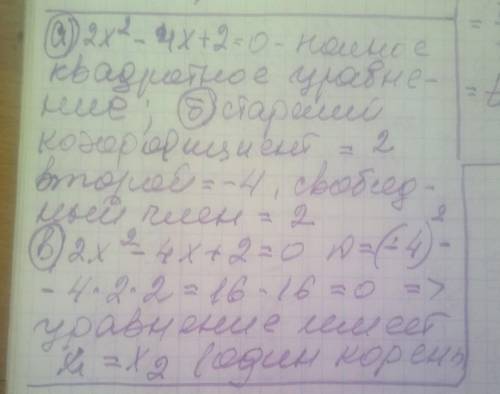 а) 2x² - 4x + 2 = 0 - полное
квадратное уравне-
ние; б) старший
коэффициент = 2
второй = -4, свобод-
ный член = 2
в) 2x² - 4x + 2 = 0 D = (-4)² -
- 4·2·2 = 16 - 16 = 0 =>
уравнение имеет
x₁ = x₂ (один корень